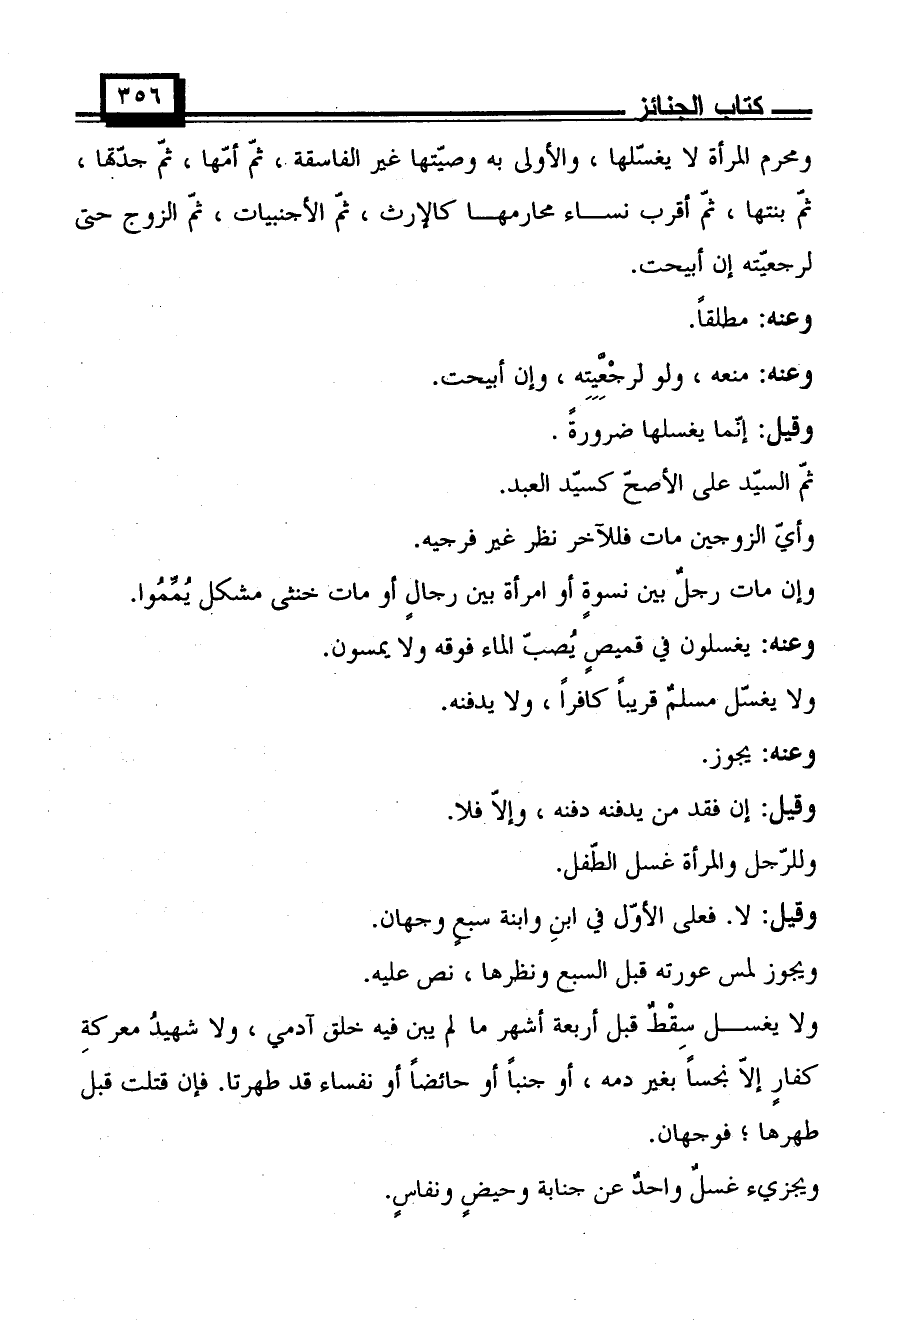 كتاب الجنائز
٣٥٦
ومحرم المرأة لا يغسّلها ، والأولى به وصيّتها غير الفاسقة ، ثمّ أمّها ، ثمّ جدّتها ،
ثمّ بنتها ، ثمّ أقرب نساء محارمها كالإرث ، ثمّ الأجنبيات ، ثمّ الزوج حتى
لرجعيّته إن أبيحت.
وعنه: مطلقاً.
وعنه: منعه ، ولو لرجْعَيِّتِه ، وإن أبيحت.
وقيل: إنّما يغسلها ضرورةً .
ثمّ السيّد على الأصحّ كسيّد العبد.
وأيّ الزوجين مات فللآخر نظر غير فرجيه.
وإن مات رجلٌ بين نسوةٍ أو امرأة بين رجالٍ أو مات خنثى مشكل يُمِّمُوا.
وعنه: يغسلون في قميصٍ يُصبّ الماء فوقه ولا يمسون.
ولا يغسّل مسلمٌ قريباً كافراً ، ولا يدفنه.
وعنه: يجوز.
وقيل: إن فقد من يدفنه دفنه ، وإلاّ فلا.
وللرّجل والمرأة غسل الطّفل.
وقيل: لا. فعلى الأوّل في ابنِ وابنة سبعٍ وجهان.
ويجوز لمس عورته قبل السبع ونظرها ، نص عليه.
ولا يغسل سِقْطٌ قبل أربعة أشهر ما لم يبن فيه خلق آدمي ، ولا شهيدُ معركةِ
كفارٍ إلاّ نجساً بغير دمه ، أو جنباً أو حائضاً أو نفساء قد طهرتا. فإن قتلت قبل
طهرها ؛ فوجهان.
ويجزيء غسلٌ واحدٌ عن جنابة وحيضٍ ونفاسٍ.